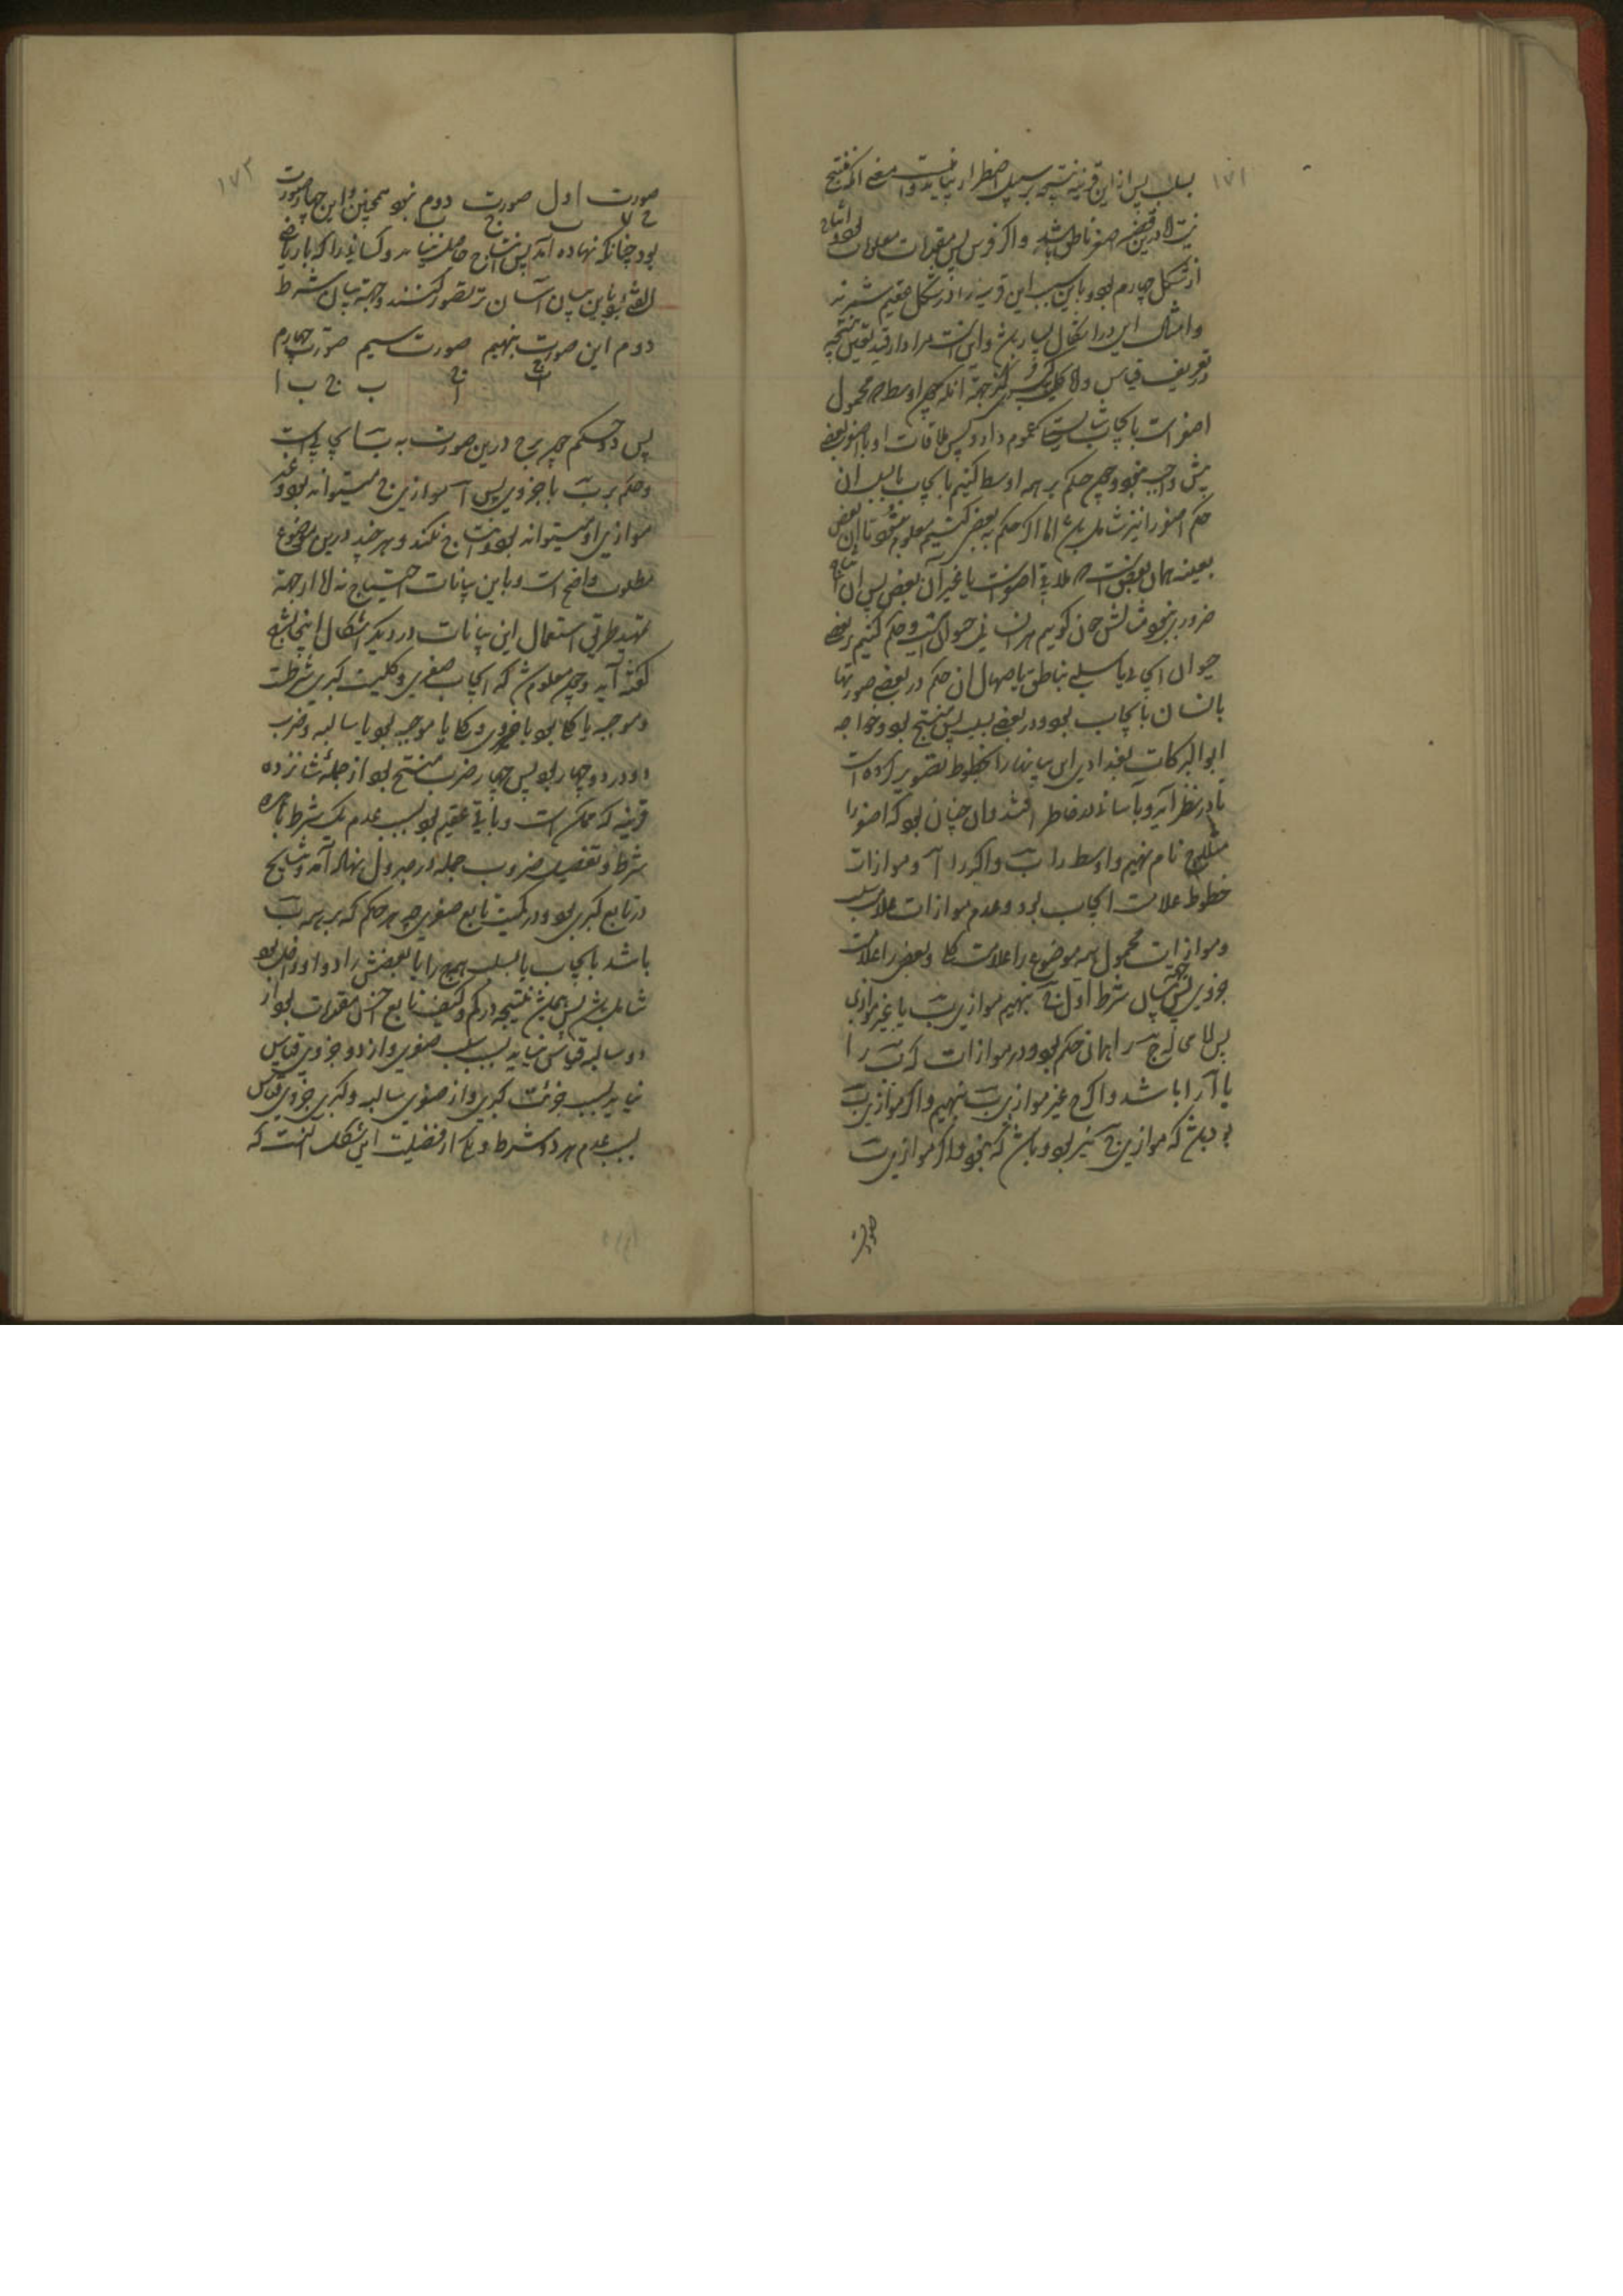 ۱۷۱
بسلب پس از این قرینه نتیجه بر سبیل اضطرار نیاید و
اصغر ناطق باشد و اگر فرس پس مقدمات
از شکل چهارم بود و باین سبب این قرینه را در شکل عقیم شمرند
و امثال این در اشکال بسیار باشد و این است مراد از قید تعین نتیجه
در تعریف قیاس و اما جهة آنکه چون اوسط محمول
اصغر است بایجاب شاید که عموم دارد و پس ملاقات او با اصغر بعضی
بیش واجب نبود و چون حکم بر همه اوسط کنیم بایجاب یا بسلب آن
حکم اصغر را نیز شامل باشد اما اگر حکم به بعضی کنیم معلوم نشود تا آن بعض
بعینه همان بعض است ملاقی اصغر است یا غیر آن بعض پس آن
ضروری نبود مثالش چنان گوییم هر انسانی حیوان است و حکم کنیم بر بعضی
حیوان ایجابی یا سلبی بناطق یا صهال آن حکم در بعضی صورتها
بانسان بایجاب بود و در بعضی بسلب پس منتج نبود و خواجه
ابو البرکات بغدادی این بیانها را بخطوط تصویر کرده است
تا در نظر آید و بآسانی در خاطر افتد و آن چنان بود که اصغر را
مثلا ج نام نهیم و اوسط را ب و اکبر را آ و موازات
خطوط علامت ایجاب بود و عدم موازات علامت سلب
و موازات محمول همه موضوع را علامت کلی و بعض را علامت
جزوی پس جهة بیان شرط اول ج نهیم موازی ب یا غیر موازی
را همان حکم بود در موازات که ب را
یا آ را باشد و اگر ج غیر موازی ب نهیم و آ موازی ب
بود باشد که موازی ج نیز بود و باشد که نبود و اگر موازی ب
صورت
۱۷۲
صورت اول صورت دوم نبود همچنین و این چهار صورت
ج
بود چنانکه نهاده آمد پس انتاج حاصل نیاید و کسانی را که با ریاضی
الف بود باین بیان آسان تر تصور کنند و جهة بیان شرط
دوم این صورت نهیم صورت سیم صورت چهارم
ب ج ب ا
پس حکم ج درین صورت به ب ایجابی است
و حکم بر ب یا جزوی پس آ موازی ج میتواند بود و غیر
موازی او میتواند بود و انتاج نکند و هر چند درین موضوع
مطلوب واضح است و باین بیانات احتیاج نه الا از جهة
تمهید طریق استعمال این بیانات در دیگر اشکال اینجا نیز
گفته آید و چون معلوم شد که ایجاب صغری و کلیت کبری شرطست
و موجبه یا کلی بود یا جزوی و کلی یا موجبه بود یا سالبه و ضرب
دو در دو چهار بود پس چهار ضرب منتج بود از جمله شانزده
قرینه که ممکن است و باقی عقیم بود بسبب عدم یک شرط یا هر دو
شرط و تفصیل ضروب جمله در جدول نهاده آمد و نتایج
در تابع کبری بود و در کمیت تابع صغری چه هر حکم که بر همه ب
باشد بایجاب یا بسلب همه ج را یا بعضش را در او داخل بود
شامل باشد پس نتیجه در کم و کیف تابع اخس مقدمات بود از
دو سالبه قیاس نیاید بسبب سلب صغری و از دو جزوی قیاس
نیاید بسبب جزئیت کبری و از صغری سالبه و کبری جزوی قیاس
بسبب عدم هر دو شرط و از فضیلت این شکل آنست که